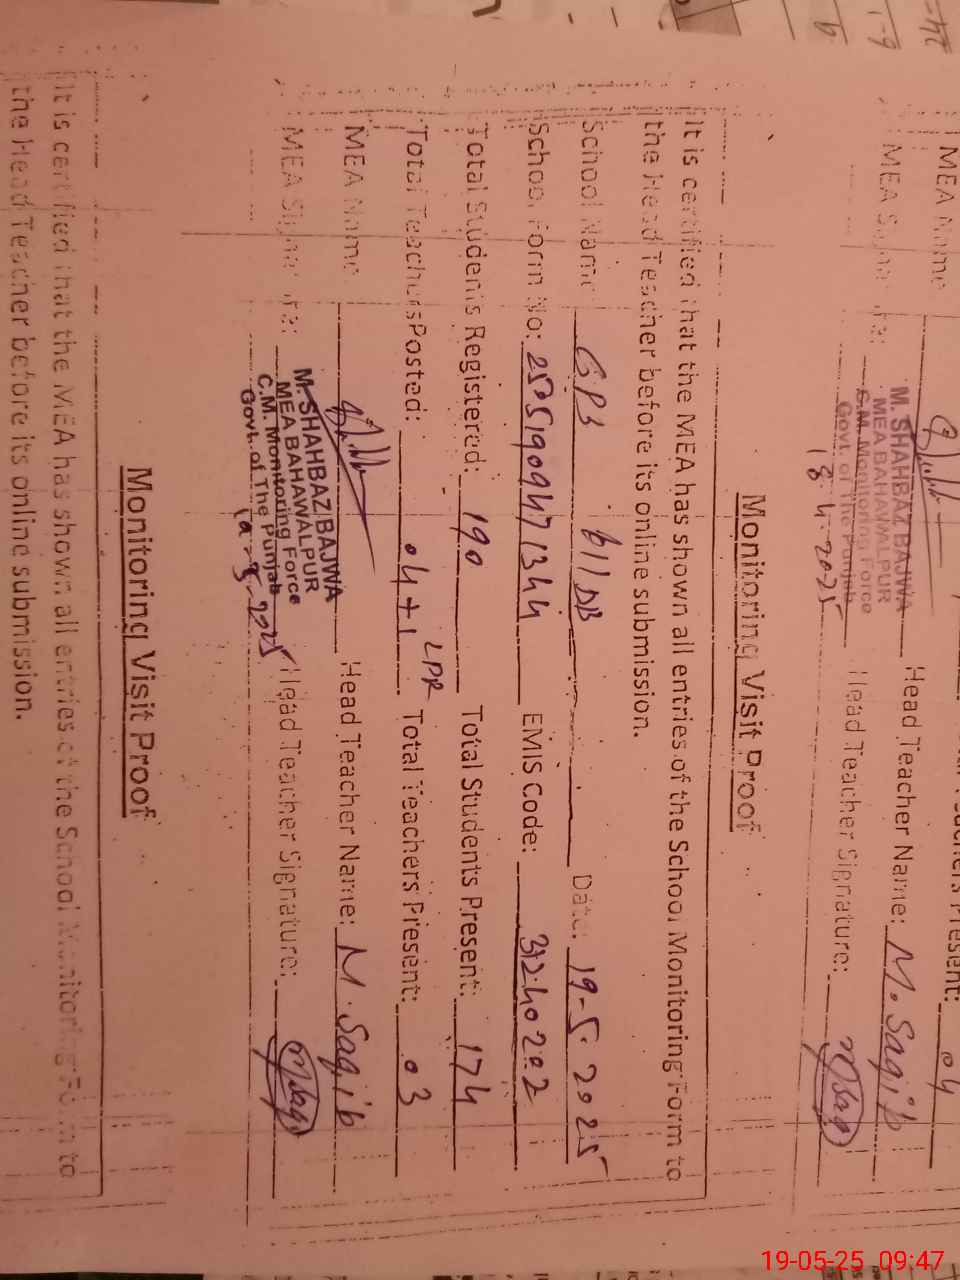 MEA Name
Head Teacher Name: M. Saqib
M. SHAHBAZ BAJWA
MEA BAHAWALPUR
C.M. Monitoring Force
Govt. of The Punjab
18-4-2025
Head Teacher Signature:
Present: 04
Monitoring Visit Proof
It is certified that the MEA has shown all entries of the School Monitoring Form to
the Head Teacher before its online submission.
School Name GPS 611 DB Date: 19-5-2025
School Form No: EMIS Code:
Total Students Registered: 190 Total Students Present: 174
Total Teachers Posted: 04+1 LPR Total Teachers Present: 03
MEA Name Head Teacher Name: M. Saqib
MEA Signature: Head Teacher Signature:
M. SHAHBAZ BAJWA
MEA BAHAWALPUR
C.M. Monitoring Force
Govt. of The Punjab
19-5-2025
Monitoring Visit Proof
It is certified that the MEA has shown all entries of the School Monitoring Form to
the Head Teacher before its online submission.
19-05-25 09:47